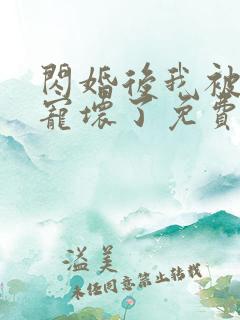 閃婚後我被
寵壞了免費
溢美
未任同意禁止转载